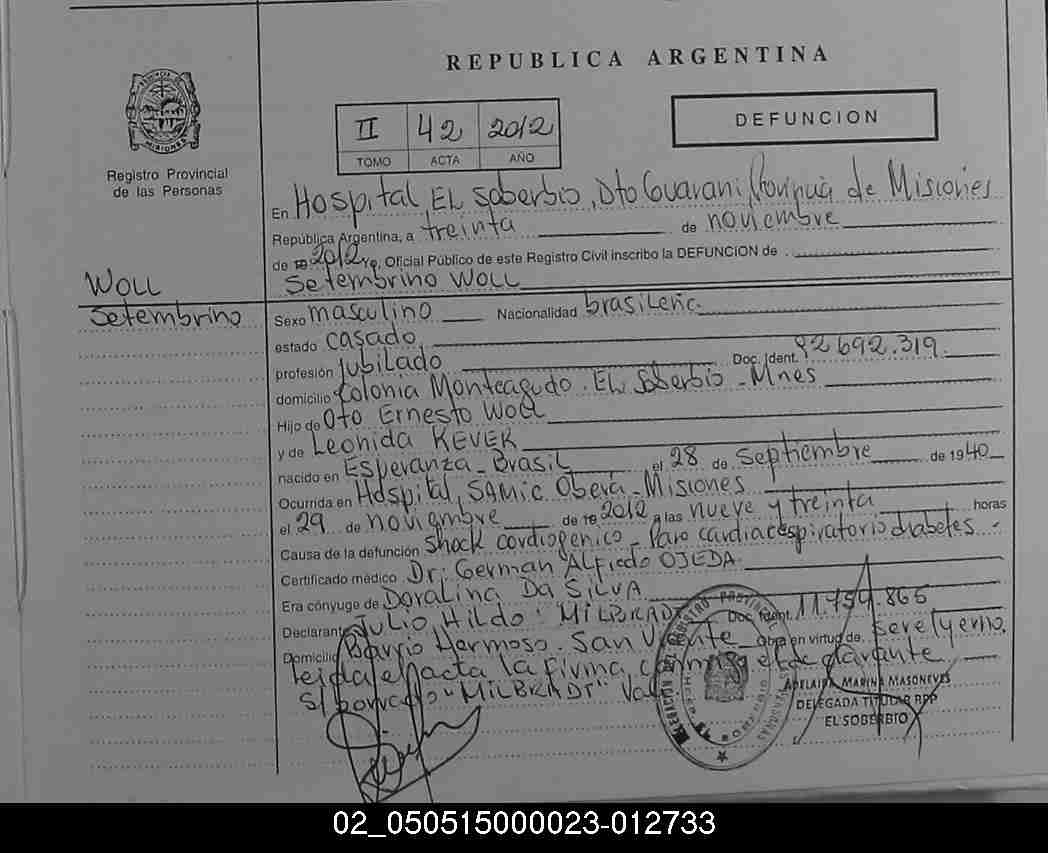 REPUBLICA ARGENTINA
II 42 2012
TOMO ACTA AÑO
DEFUNCION
Registro Provincial
de las Personas
En Hospital EL Soberbio, Dto Guarani Provincia de Misiones
República Argentina, a treinta de noviembre
de 19 2012, Oficial Público de este Registro Civil inscribo la DEFUNCION de
Setembrino WOLL
WOLL
Setembrino
Sexo masculino Nacionalidad brasileña
estado casado
profesión jubilado Doc. Ident. 92692.319
domicilio Colonia Monteagudo. EL Soberbio - Mnes
Hijo de Oto Ernesto WOLL
y de Leonida KEVER
nacido en Esperanza - Brasil el 28 de Septiembre de 1940
Ocurrida en Hospital, SAMIC Oberá - Misiones
el 29 de noviembre de 19 2012 a las nueve y treinta horas
Causa de la defunción Shock cardiogenico - Paro cardiacespiratorio diabetes -
Certificado médico Dr: German Alfredo OJEDA
Era cónyuge de Doralina Da SILVA
Declarante Julio Hildo: MILBRADT Doc. Ident. 11.754.865
Domicilio Barrio Hermoso. San Vicente Obra en virtud de ser el yerno.
Leida el acta la firma conmigo el declarante
S/borrado "MILBRADT" Vale
MISIONES
EL SOBERBIO
ADELAIDA MARINA MASONEVES
DELEGADA TITULAR RPP
EL SOBERBIO
02_050515000023-012733